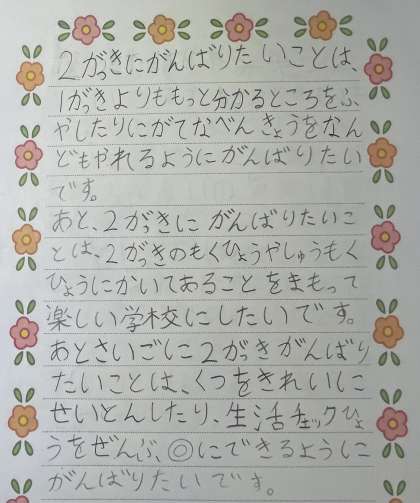 2がっきにがんばりたいことは、
1がっきよりももっと分かるところをふ
やしたりにがてなべんきょうをなん
どもやれるようにがんばりたい
です。
あと、2がっきにがんばりたいこ
とは、2がっきのもくひょうやしゅうもく
ひょうにかいてあることをまもって
楽しい学校にしたいです。
あとさいごに2がっきがんばり
たいことは、くつをきれいに
せいとんしたり、生活チェックひょ
うをぜんぶ、◎にできるように
がんばりたいです。